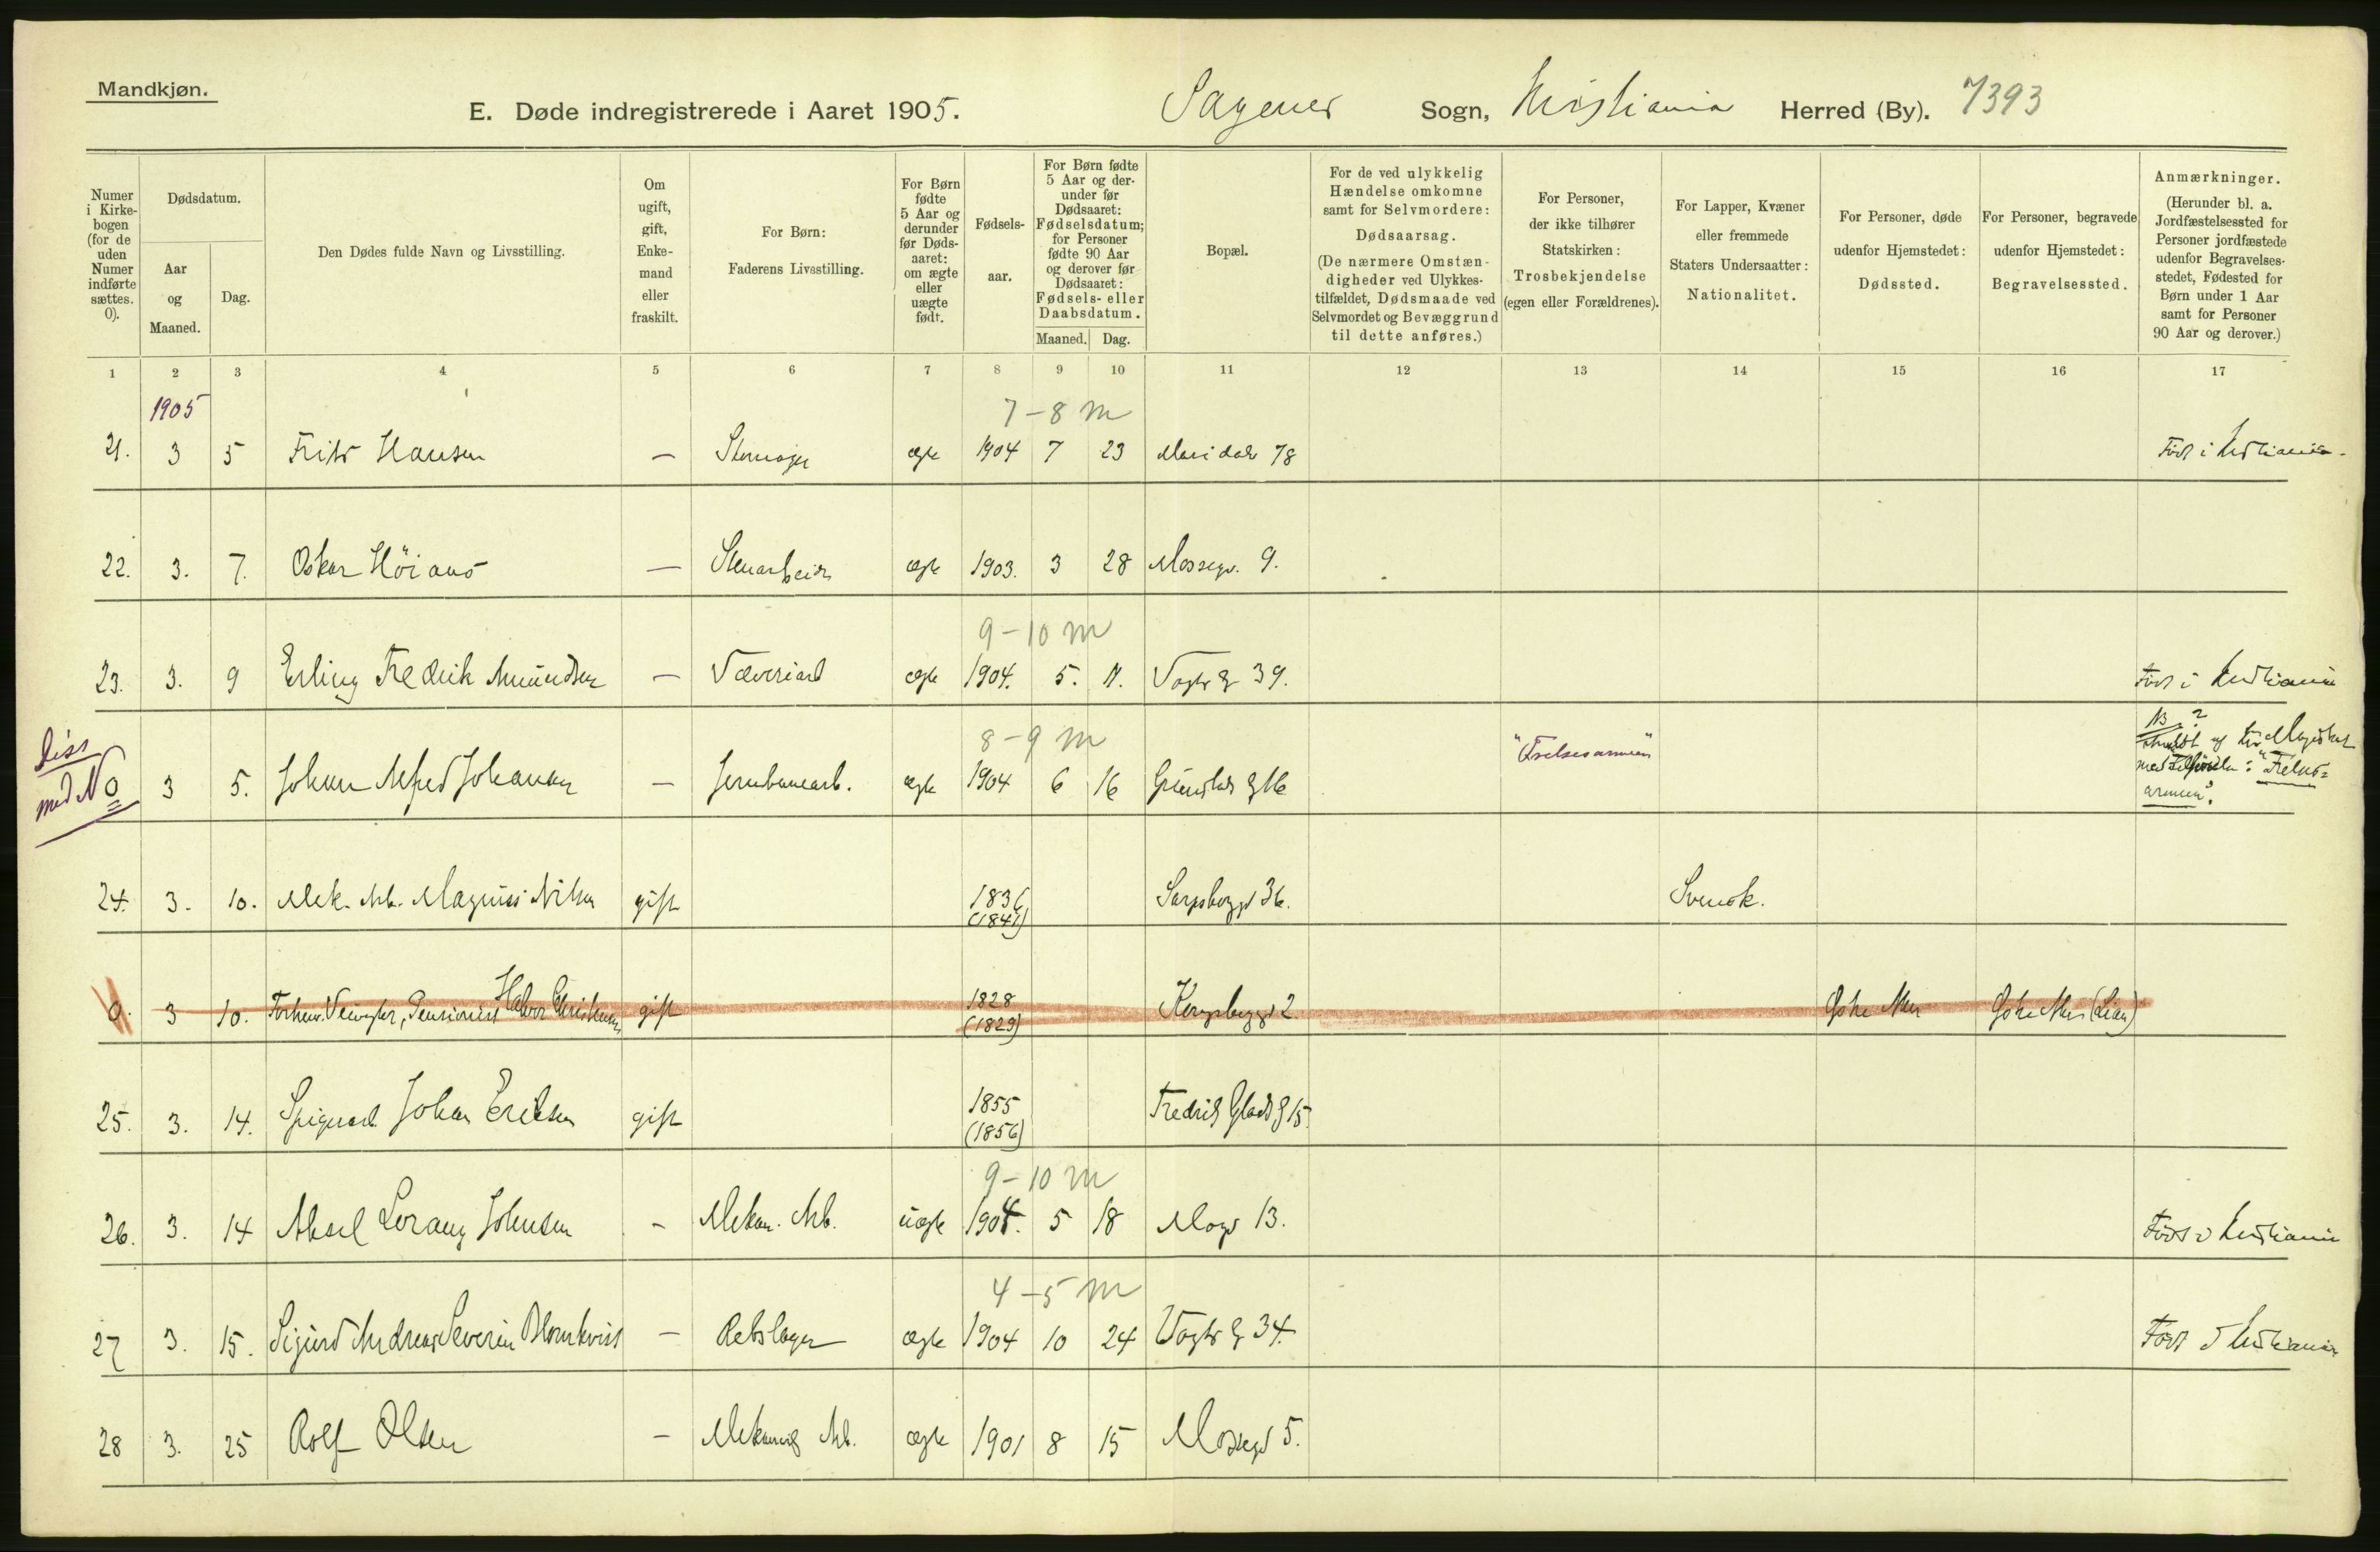 Mandkjøn.
E. Døde indregistrerede i Aaret 1905. Sagenes Sogn, Kristiania Herred (By). 7393
Numer i Kirkebogen (for de uden Numer indførte sættes. 0).
Dødsdatum.
Aar og Maaned.
Dag.
Den Dødes fulde Navn og Livsstilling.
Om ugift, gift, Enkemand eller fraskilt.
For Børn: Faderens Livsstilling.
For Børn fødte 5 Aar og derunder før Dødsaaret: om ægte eller uægte født.
Fødselsaar.
For Børn fødte 5 Aar og derunder før Dødsaaret: Fødselsdatum; for Personer fødte 90 Aar og derover før Dødsaaret: Fødsels- eller Daabsdatum.
Maaned. Dag.
Bopæl.
For de ved ulykkelig Hændelse omkomne samt for Selvmordere: Dødsaarsag. (De nærmere Omstændigheder ved Ulykkestilfældet, Dødsmaade ved Selvmordet og Bevæggrund til dette anføres.)
For Personer, der ikke tilhører Statskirken: Trosbekjendelse (egen eller Forældrenes).
For Lapper, Kvæner eller fremmede Staters Undersaatter: Nationalitet.
For Personer, døde udenfor Hjemstedet: Dødssted.
For Personer, begravede udenfor Hjemstedet: Begravelsessted.
Anmærkninger. (Herunder bl. a. Jordfæstelsessted for Personer jordfæstede udenfor Begravelsesstedet, Fødested for Børn under 1 Aar samt for Personer 90 Aar og derover.)
1 2 3 4 5 6 7 8 9 10 11 12 13 14 15 16 17
1905
7-8 m
21. 3 5 Frits Hansen — ægte 1904 7 23 Maridals 78 Født i Kristiania.
22. 3. 7. Oskar Höiaas — Stenarbeider ægte 1903. 3 28 Mossegd. 9.
9-10 m
23. 3. 9 Erling Fredrik Amundsen — Væveriarb ægte 1904. 5. 11. Vogts g 39. Født i Kristiania
8-9 m
med No 3 5. Johan Alfred Johansen — Jernbanearb. ægte 1904 6 16 Grünerløk g 16 "Frelsesarmeen" NB. ?
af Kra Magistrat
med Tilføielse: "Frelsesarmeen".
24. 3. 10. Mek. Arb. Magnus Nilsen gift 1836 (1841) Sarpsborggd 36. Svensk.
0. 3 10. Forhenv. Veivogter, Pensionist Halvor Christensen gift 1828 (1829) Kongsberggd 2 Østre Aker Østre Aker (Lian)
25. 3. 14. Spigerarb Johan Eriksen gift 1855 (1856) Fredrik Glads g 15.
9-10 m
26. 3. 14 Aksel Lorang Johnsen - Mekan. Arb. uægte 1904. 5 18 Mogd 13. Født i Kristiania
4-5 m
27 3. 15. Sigurd Andreas Severin Blomkvist — Rebslager ægte 1904 10 24 Vogts g 34. Født i Kristiania
28 3. 25 Rolf Olsen — Mekanisk Arb. ægte 1901 8 15 Mossegd 5.